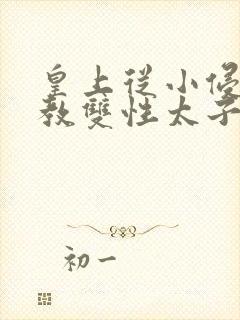 皇上從小
教雙性太子
初一